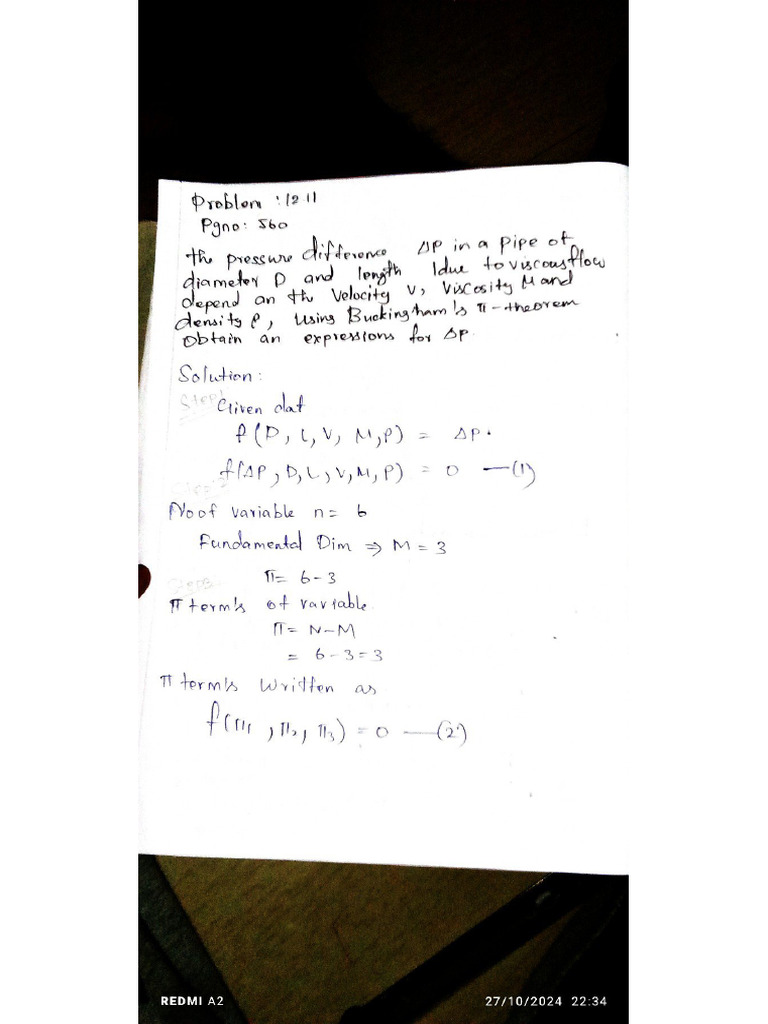 Problem : 12.11
Pgno: 560
the pressure difference ΔP in a pipe of
diameter D and length l due to viscous flow
depend an the Velocity V, Viscosity M and
density ρ, Using Buckingham's π-theorem
Obtain an expressions for ΔP.
Solution:
Step1
Given dat
f(D, L, V, M, P) = ΔP.
f(ΔP, D, L, V, M, P) = 0 —(1)
No of variable n = 6
Fundamental Dim ⇒ M = 3
π = 6-3
π term's of variable
π = N-M
= 6-3=3
π term's Written as
f(π1, π2, π3) = 0 —(2)
REDMI A2
27/10/2024 22:34